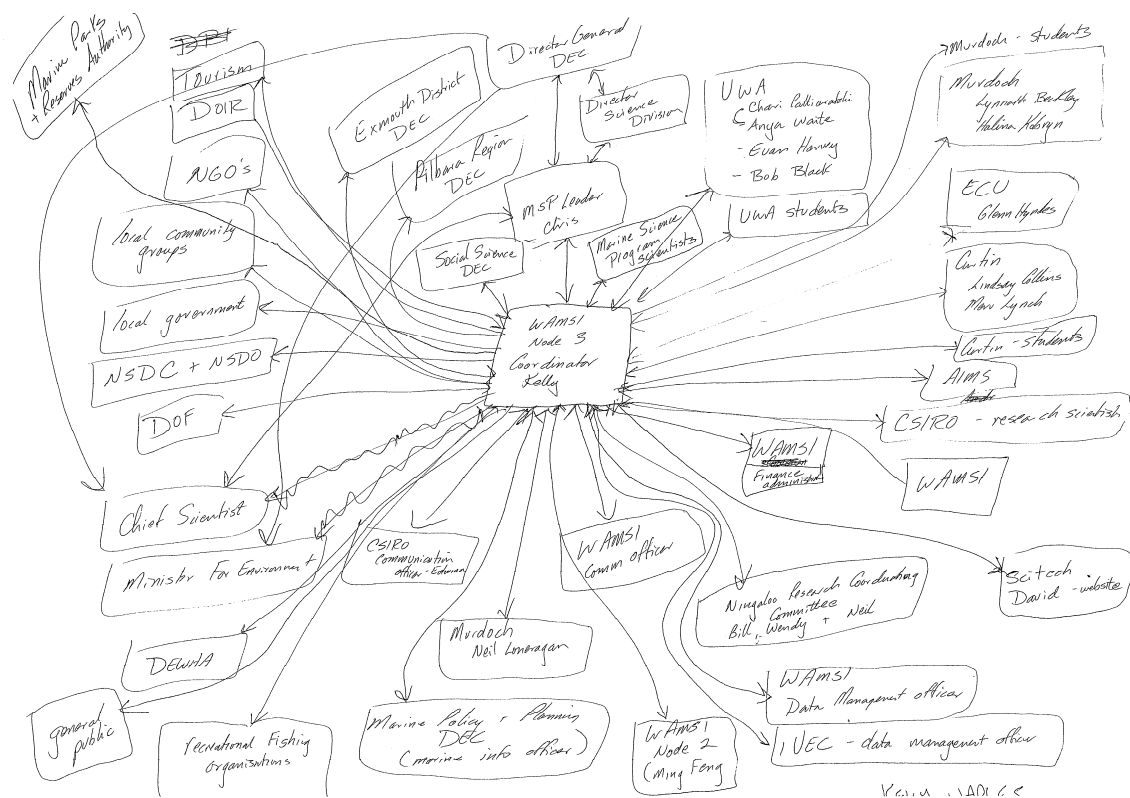 Marine Parks
+ Reserves Authority
Tourism
DOIR
NGO's
local community
groups
local government
NSDC + NSDO
DOF
Chief Scientist
Minister For Environment
DEWHA
general
public
recreational Fishing
organisations
Exmouth District
DEC
Pilbara Region
DEC
Social Science
DEC
Director General
DEC
Director
Science
Division
MSP Leader
Chris
Marine Science
Program
Scientists
WAMSI
Node 3
Coordinator
Kelly
UWA
Anya Waite
- Euan Harvey
- Bob Black
UWA students
Murdoch - students
Murdoch
Lynnath Beckley
Halina Kobryn
ECU
Glenn Hyndes
Curtin
Lindsay Collins
Merv Lynch
Curtin - students
AIMS
CSIRO - research scientist
WAMSI
Finance
WAMSI
Scitech
David - website
CSIRO
Communication
officer -
WAMSI
Comm officer
Ningaloo Research Coordinating
Committee
Bill, Wendy + Neil
Murdoch
Neil Loneragan
Marine Policy + Planning
DEC
(marine info officer)
WAMSI
Node 2
(Ming Feng
WAMSI
Data Management officer
IVEC - data management officer